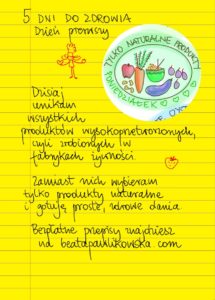 5 DNI DO ZDROWIA
Dzień pierwszy
TYLKO NATURALNE PRODUKTY
PONIEDZIAŁEK
Dzisiaj
unikam
wszystkich
produktów wysokoprzetworzonych,
czyli zrobionych w
fabrykach żywności.
Zamiast nich wybieram
tylko produkty naturalne
i gotuję proste, zdrowe dania
Bezpłatne przepisy znajdziesz
na beatapawlikowska.com